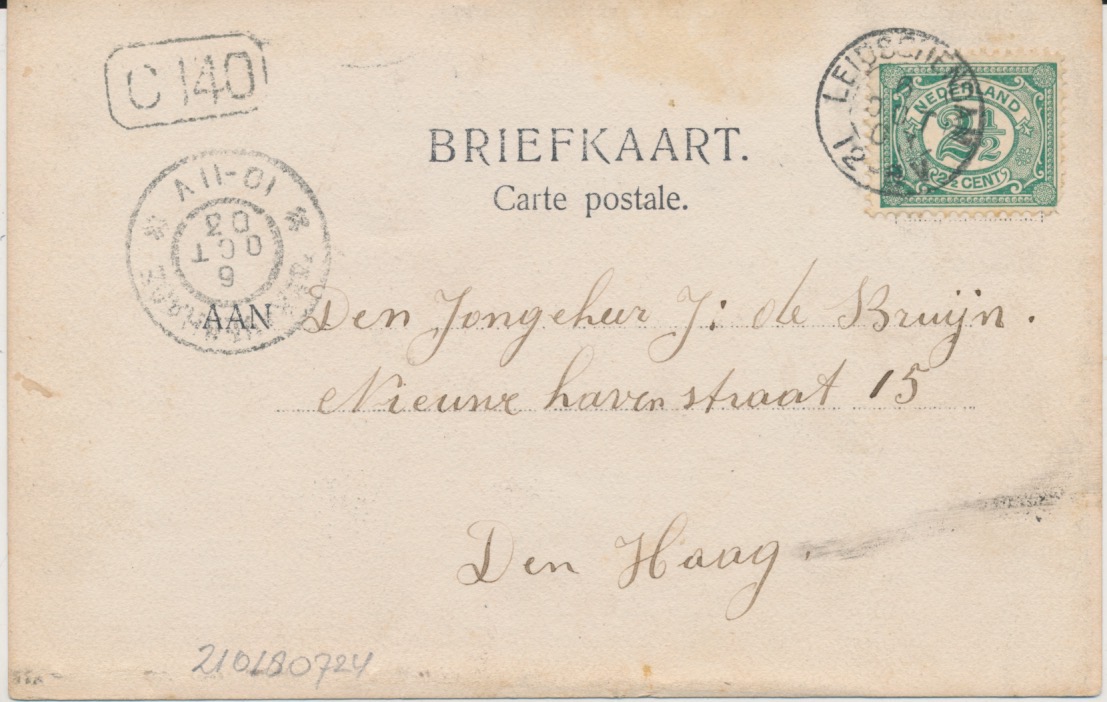 C 140
LEIDSCHENDAM
NEDERLAND
2½
2½ CENT
BRIEFKAART.
Carte postale.
10-11V
6
OCT
03
AAN Den Jongeheer J: de Bruijn.
Nieuwe haven straat 15
Den Haag.
210180724